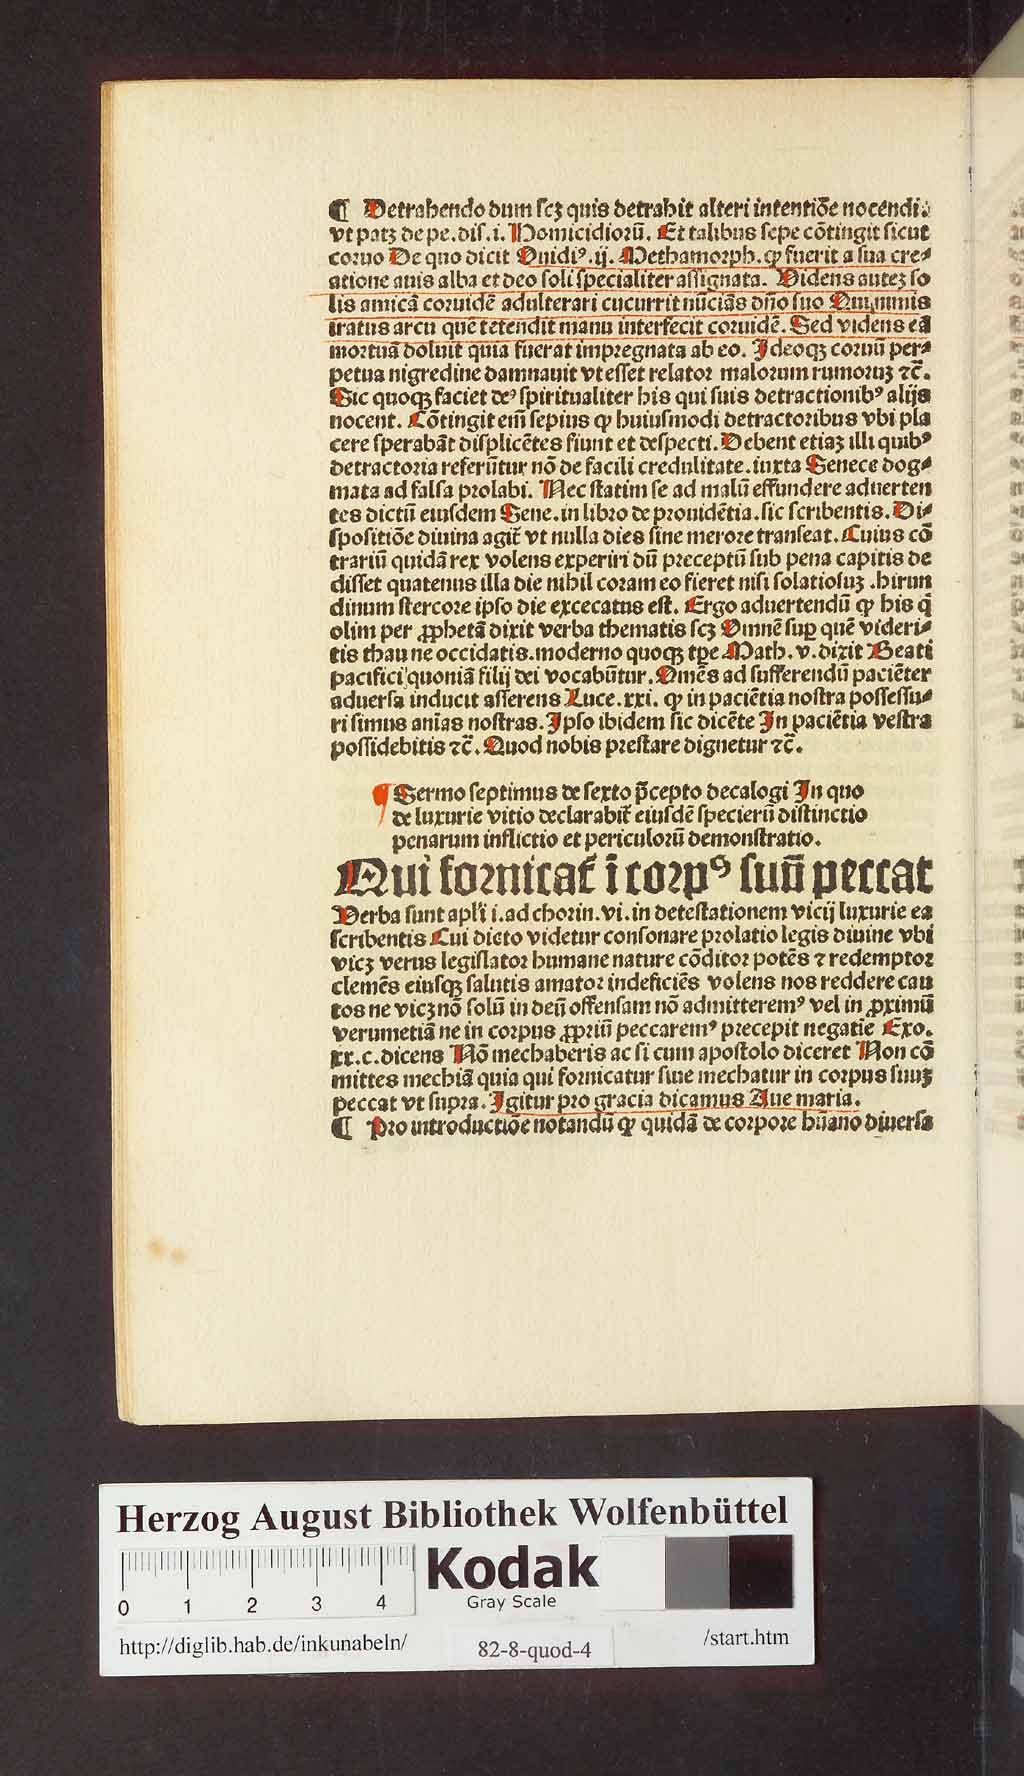 ¶ Detrahendo dum scꝫ quis detrahit alteri intentiōe nocendi.
vt patꝫ de pe. dis. i. Homicidiorū. Et talibus sepe cōtingit sicut
coruo De quo dicit Ouidiꝰ. ij. Methamorph. ꝙ fuerit a sua cre⸗
atione auis alba et deo soli specialiter assignata. Uidens auteꝫ so
lis amicā coruidē adulterari cucurrit nūcians dn̄o suo Qui nimis
iratus arcu quē tetendit manu interfecit coruidē. Sed videns eā
mortuā doluit quia fuerat impregnata ab eo. Ideoqꝫ coruū per⸗
petua nigredine damnauit vt esset relator malorum rumoruꝫ ⁊c̄.
Sic quoqꝫ faciet deꝰ spiritualiter his qui suis detractionibꝰ alijs
nocent. Cōtingit em̄ sepius ꝙ huiusmodi detractoribus vbi pla
cere sperabāt displicētes fiunt et despecti. Debent etiaꝫ illi quibꝰ
detractoria referūtur nō de facili credulitate. iuxta Senece dog⸗
mata ad falsa prolabi. Nec statim se ad malū effundere aduerten
tes dictū eiusdem Sene. in libro de prouidētia. sic scribentis. Di⸗
spositiōe diuina agit̄ vt nulla dies sine merore transeat. Cuius cō
trariū quidā rex volens experiri dū preceptū sub pena capitis de
disset quatenus illa die nihil coram eo fieret nisi solatiosuꝫ. hirun
dinum stercore ipso die excecatus est. Ergo aduertendū ꝙ his q̄
olim per ꝓphetā dixit verba thematis scꝫ Omnē suꝑ quē videri⸗
tis thau ne occidatis. moderno quoqꝫ tꝑe Math. v. dixit Beati
pacifici quoniā filij dei vocabūtur. Omēs ad sufferendū paciēter
aduersa inducit asserens Luce. xxi. ꝙ in paciētia nostra possessu⸗
ri simus anīas nostras. Ipso ibidem sic dicēte In paciētia vestra
possidebitis ⁊c̄. Quod nobis prestare dignetur ⁊c̄.
¶ Sermo septimus de sexto p̄cepto decalogi In quo
de luxurie vitio declarabit̄ eiusdē specierū distinctio
penarum inflictio et periculorū demonstratio.
Qui fornicat̄ ī corpꝰ suū peccat
Verba sunt apl̄i i. ad chorin. vi. in detestationem vicij luxurie ea
scribentis Cui dicto videtur consonare prolatio legis diuine vbi
vicꝫ verus legislator humane nature cōditor potēs ⁊ redemptor
clemēs eiusqꝫ salutis amator indeficiēs volens nos reddere cau
tos ne vicꝫ nō solū in deū offensam nō admitteremꝰ vel in ꝓximū
verumetiā ne in corpus ꝓpriū peccaremꝰ precepit negatīe Exo.
xx. c. dicens Nō mechaberis ac si cum apostolo diceret Non cō
mittes mechiā quia qui fornicatur siue mechatur in corpus suuꝫ
peccat vt supra. Igitur pro gracia dicamus Aue maria.
¶ Pro introductiōe notandū ꝙ quidā de corpore hūano diuersa
Herzog August Bibliothek Wolfenbüttel
0 1 2 3 4
Kodak
Gray Scale
http://diglib.hab.de/inkunabeln/
82-8-quod-4
/start.htm